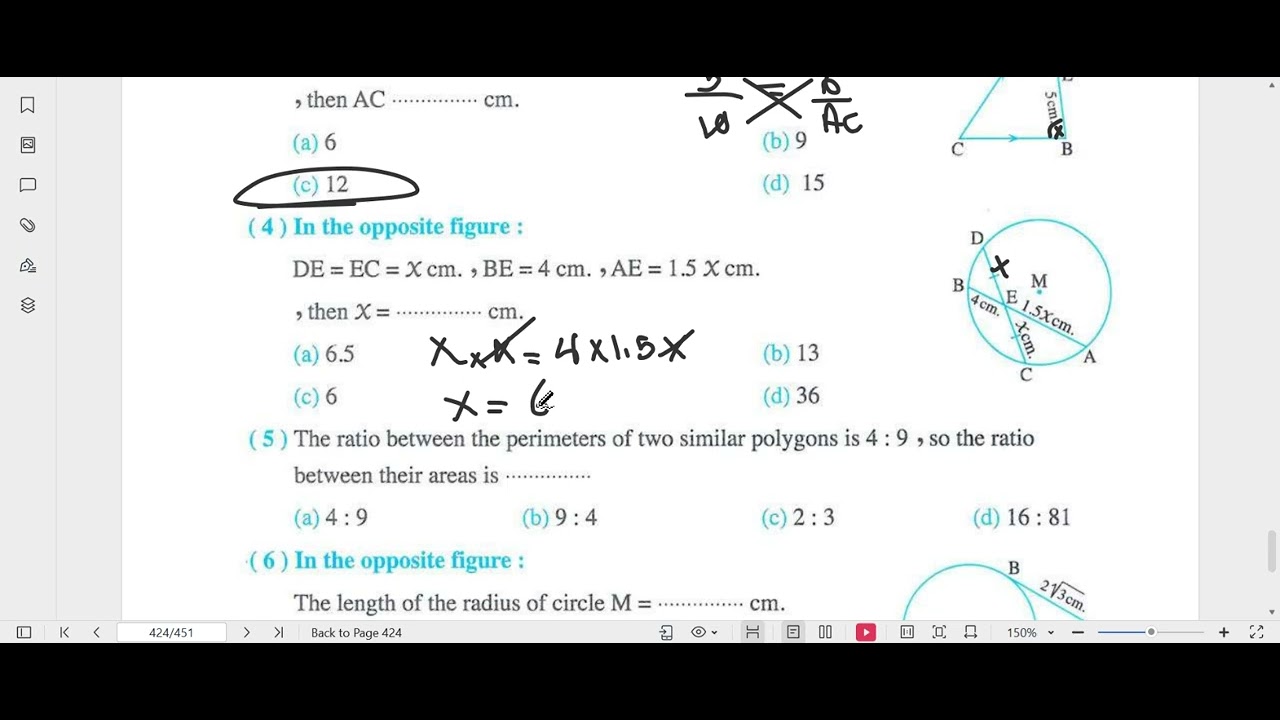 , then AC ............... cm.
(a) 6
(b) 9
(c) 12
(d) 15
10
AC
5cm.
C
B
(4) In the opposite figure :
DE = EC = X cm. , BE = 4 cm. , AE = 1.5 X cm.
, then X = ............... cm.
(a) 6.5
(b) 13
(c) 6
(d) 36
x × x = 4 × 1.5 x
x = 6
D
x
M
B
E
4cm.
1.5Xcm.
Xcm.
A
C
(5) The ratio between the perimeters of two similar polygons is 4 : 9 , so the ratio
between their areas is ...............
(a) 4 : 9
(b) 9 : 4
(c) 2 : 3
(d) 16 : 81
(6) In the opposite figure :
B
2√3cm.
The length of the radius of circle M = ............... cm.
424/451
Back to Page 424
150%